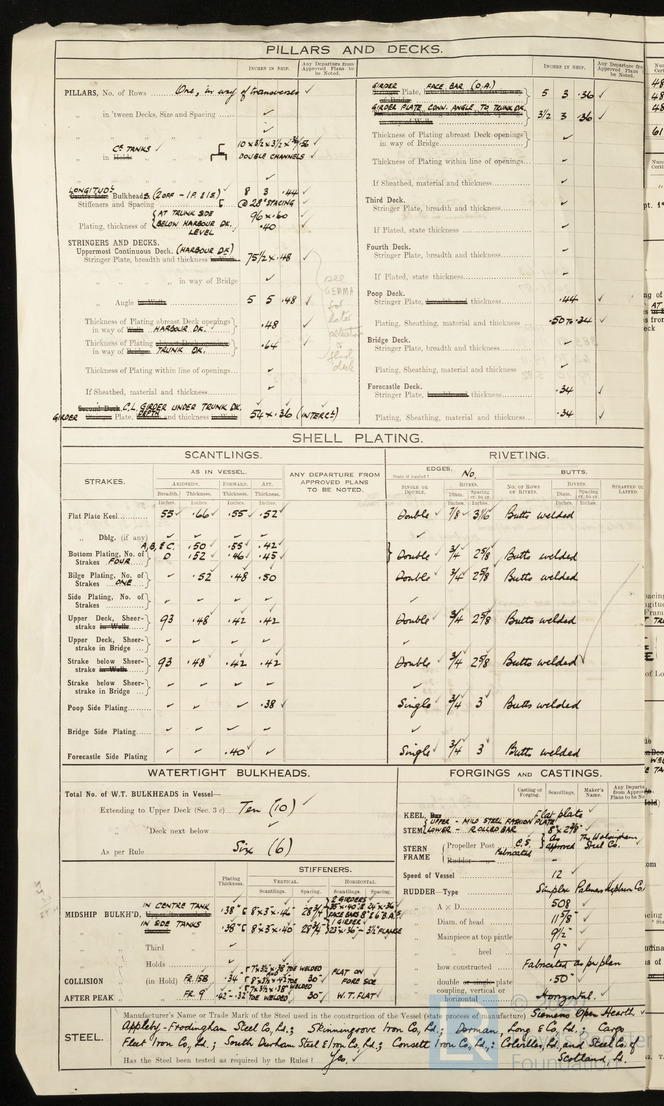 PILLARS AND DECKS.
INCHES IN SHIP. Any Departure from Approved Plans to be Noted.
PILLARS, No. of Rows One, in way of transverses
in 'tween Decks, Size and Spacing
" in Holds CR. TANKS 10 x 3½ x 3½ DOUBLE CHANNELS
LONGITUDL Bulkheads. (2 OFF - 1P. & 1S.) 8 3 .44
Stiffeners and Spacing @ 28" SPACING
Plating, thickness of { AT TRUNK SIDE 96 x .60
BELOW HARBOUR DK. LEVEL .40
STRINGERS AND DECKS.
Uppermost Continuous Deck. (HARBOUR DK)
Stringer Plate, breadth and thickness in Wells 75½ x .48
" " " " in way of Bridge
" Angle in Wells 5 5 .48
Thickness of Plating abreast Deck openings
in way of Wells HARBOUR DK. .48
Thickness of Plating abreast Deck openings
in way of Bridge TRUNK DK. .64
Thickness of Plating within line of openings
If Sheathed, material and thickness
Second Deck. C.L. GIRDER UNDER TRUNK DK.
GIRDER Stringer Plate, DEPTH and thickness in Wells 54 x .36 (INTERCL)
INCHES IN SHIP. Any Departure from Approved Plans to be Noted.
GIRDER Stringer Plate, FACE BAR (O.A.) 5 3 .36
GIRDER PLATE CONN. ANGLE TO TRUNK DK. 3½ 3 .36
Thickness of Plating abreast Deck openings
in way of Bridge
Thickness of Plating within line of openings
If Sheathed, material and thickness
Third Deck.
Stringer Plate, breadth and thickness
If Plated, state thickness
Fourth Deck.
Stringer Plate, breadth and thickness
If Plated, state thickness
Poop Deck.
Stringer Plate, breadth and thickness .44
Plating, Sheathing, material and thickness .50 to .34
Bridge Deck.
Stringer Plate, breadth and thickness
Plating, Sheathing, material and thickness
Forecastle Deck.
Stringer Plate, breadth and thickness .34
Plating, Sheathing, material and thickness .34
SHELL PLATING.
SCANTLINGS. RIVETING.
STRAKES. AS IN VESSEL. ANY DEPARTURE FROM APPROVED PLANS TO BE NOTED. EDGES. No BUTTS.
AMIDSHIPS. FORWARD. AFT. SINGLE OR DOUBLE. RIVETS. NO. OF ROWS OF RIVETS. RIVETS.
Breadth. Thickness. Thickness. Thickness. Diam. Spacing cr. to cr. Diam. Spacing cr. to cr.
Inches. Inches. Inches. Inches. Inches. Inches. Inches. Inches.
Flat Plate Keel 55 .66 .55 .52 Double 7/8 3 1/16 Butts welded
" Dblg. (if any)
Bottom Plating, No. of A, B, & C. .50 .55 .42
Strakes FOUR D .52 .46 .45 Double 3/4 2 5/8 Butts welded
Bilge Plating, No. of
Strakes ONE .52 .48 .50 Double 3/4 2 5/8 Butts welded
Side Plating, No. of
Strakes
Upper Deck, Sheer-
strake in Wells 93 .48 .42 .42 Double 3/4 2 5/8 Butts welded
Upper Deck, Sheer-
strake in Bridge
Strake below Sheer-
strake in Wells 93 .48 .42 .42 Double 3/4 2 5/8 Butts welded
Strake below Sheer-
strake in Bridge
Poop Side Plating .38 Single 3/4 3 Butts welded
Bridge Side Plating
Forecastle Side Plating .40 Single 3/4 3 Butts welded
WATERTIGHT BULKHEADS.
Total No. of W.T. BULKHEADS in Vessel—
Extending to Upper Deck (Sec. 3 c) Ten (10)
" Deck next below
As per Rule Six (6)
STIFFENERS.
Plating Thickness. VERTICAL. HORIZONTAL.
Scantlings. Spacing. Scantlings. Spacing.
MIDSHIP BULKH'D, IN CENTRE TANK .38" 8"x3"x.44" 28¾" 2 GIRDERS
IN SIDE TANKS .38" 8"x3"x.40" 28¾" 1 GIRDER
" Third
" Holds
COLLISION (in Hold) FR. 158 .34 30" FLAT ON FORE SIDE
AFTER PEAK FR. 9 .42-.32 TOE WELDED 30" W.T. FLAT
FORGINGS AND CASTINGS.
Casting or Forging. Scantlings. Maker's Name. Any Departure from Approved Plans to be Noted
KEEL, Bar Flat plate
STEM { UPPER - MILD STEEL FASHION PLATE
LOWER - ROLLED BAR 8"x2⅝"
STERN FRAME { Propeller Post C.S. Fabricated As approved The Wolsingham Steel Co.
Rudder
Speed of Vessel 12
RUDDER—Type Simplex Palmers Hebburn Co
A x D 508
Diam. of head 11⅝"
Mainpiece at top pintle 9½"
" heel 9"
" how constructed Fabricated as per plan
" double or single plate .50"
" coupling, vertical or horizontal Horizontal.
STEEL. Manufacturer's Name or Trade Mark of the Steel used in the construction of the Vessel (state process of manufacture) Siemens Open Hearth
Appleby-Frodingham Steel Co, Ld.; Skinningrove Iron Co, Ld.; Dorman, Long & Co, Ld.; Cargo
Fleet Iron Co, Ld.; South Durham Steel & Iron Co, Ld.; Consett Iron Co, Ld.; Colvilles, Ld. and Steel Co. of
Has the Steel been tested as required by the Rules? Yes. Scotland, Ld.
© Lloyd's Register
Foundation